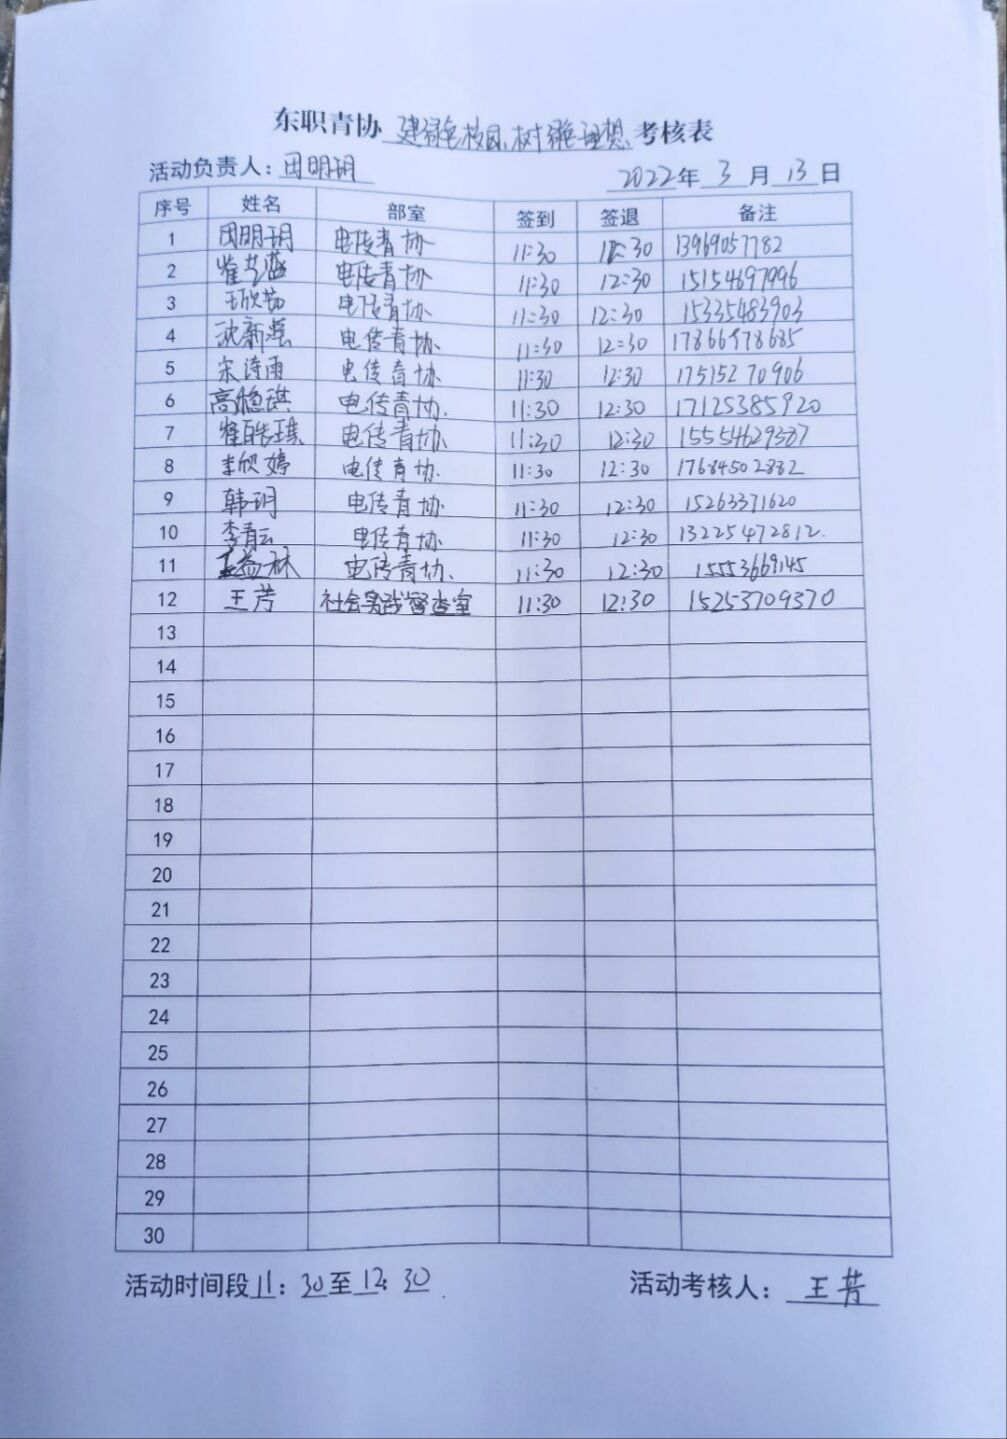 东职青协 建绿色校园,树绿色理想 考核表
活动负责人: 明玥
2022年 3 月 13 日
序号 姓名 部室 签到 签退 备注
1 明玥 电传青协 11:30 12:30 13969057782
2 崔 电传青协 11:30 12:30 15154697996
3 王欣茹 电传青协 11:30 12:30 15335483903
4 新 电传青协 11:30 12:30 17866978685
5 宋诗雨 电传青协 11:30 12:30 17515270906
6 高稳琪 电传青协. 11:30 12:30 17125385920
7 电传青协. 11:30 12:30 15554629387
8 李欣婷 电传青协. 11:30 12:30 17684502882
9 韩玥 电传青协. 11:30 12:30 15263371620
10 李青云 电传青协. 11:30 12:30 13225472812.
11 王益林 电传青协. 11:30 12:30 15553669145
12 王芳 社会实践督查室 11:30 12:30 15253709370
13
14
15
16
17
18
19
20
21
22
23
24
25
26
27
28
29
30
活动时间段 11: 30 至 12: 30.
活动考核人: 王芳